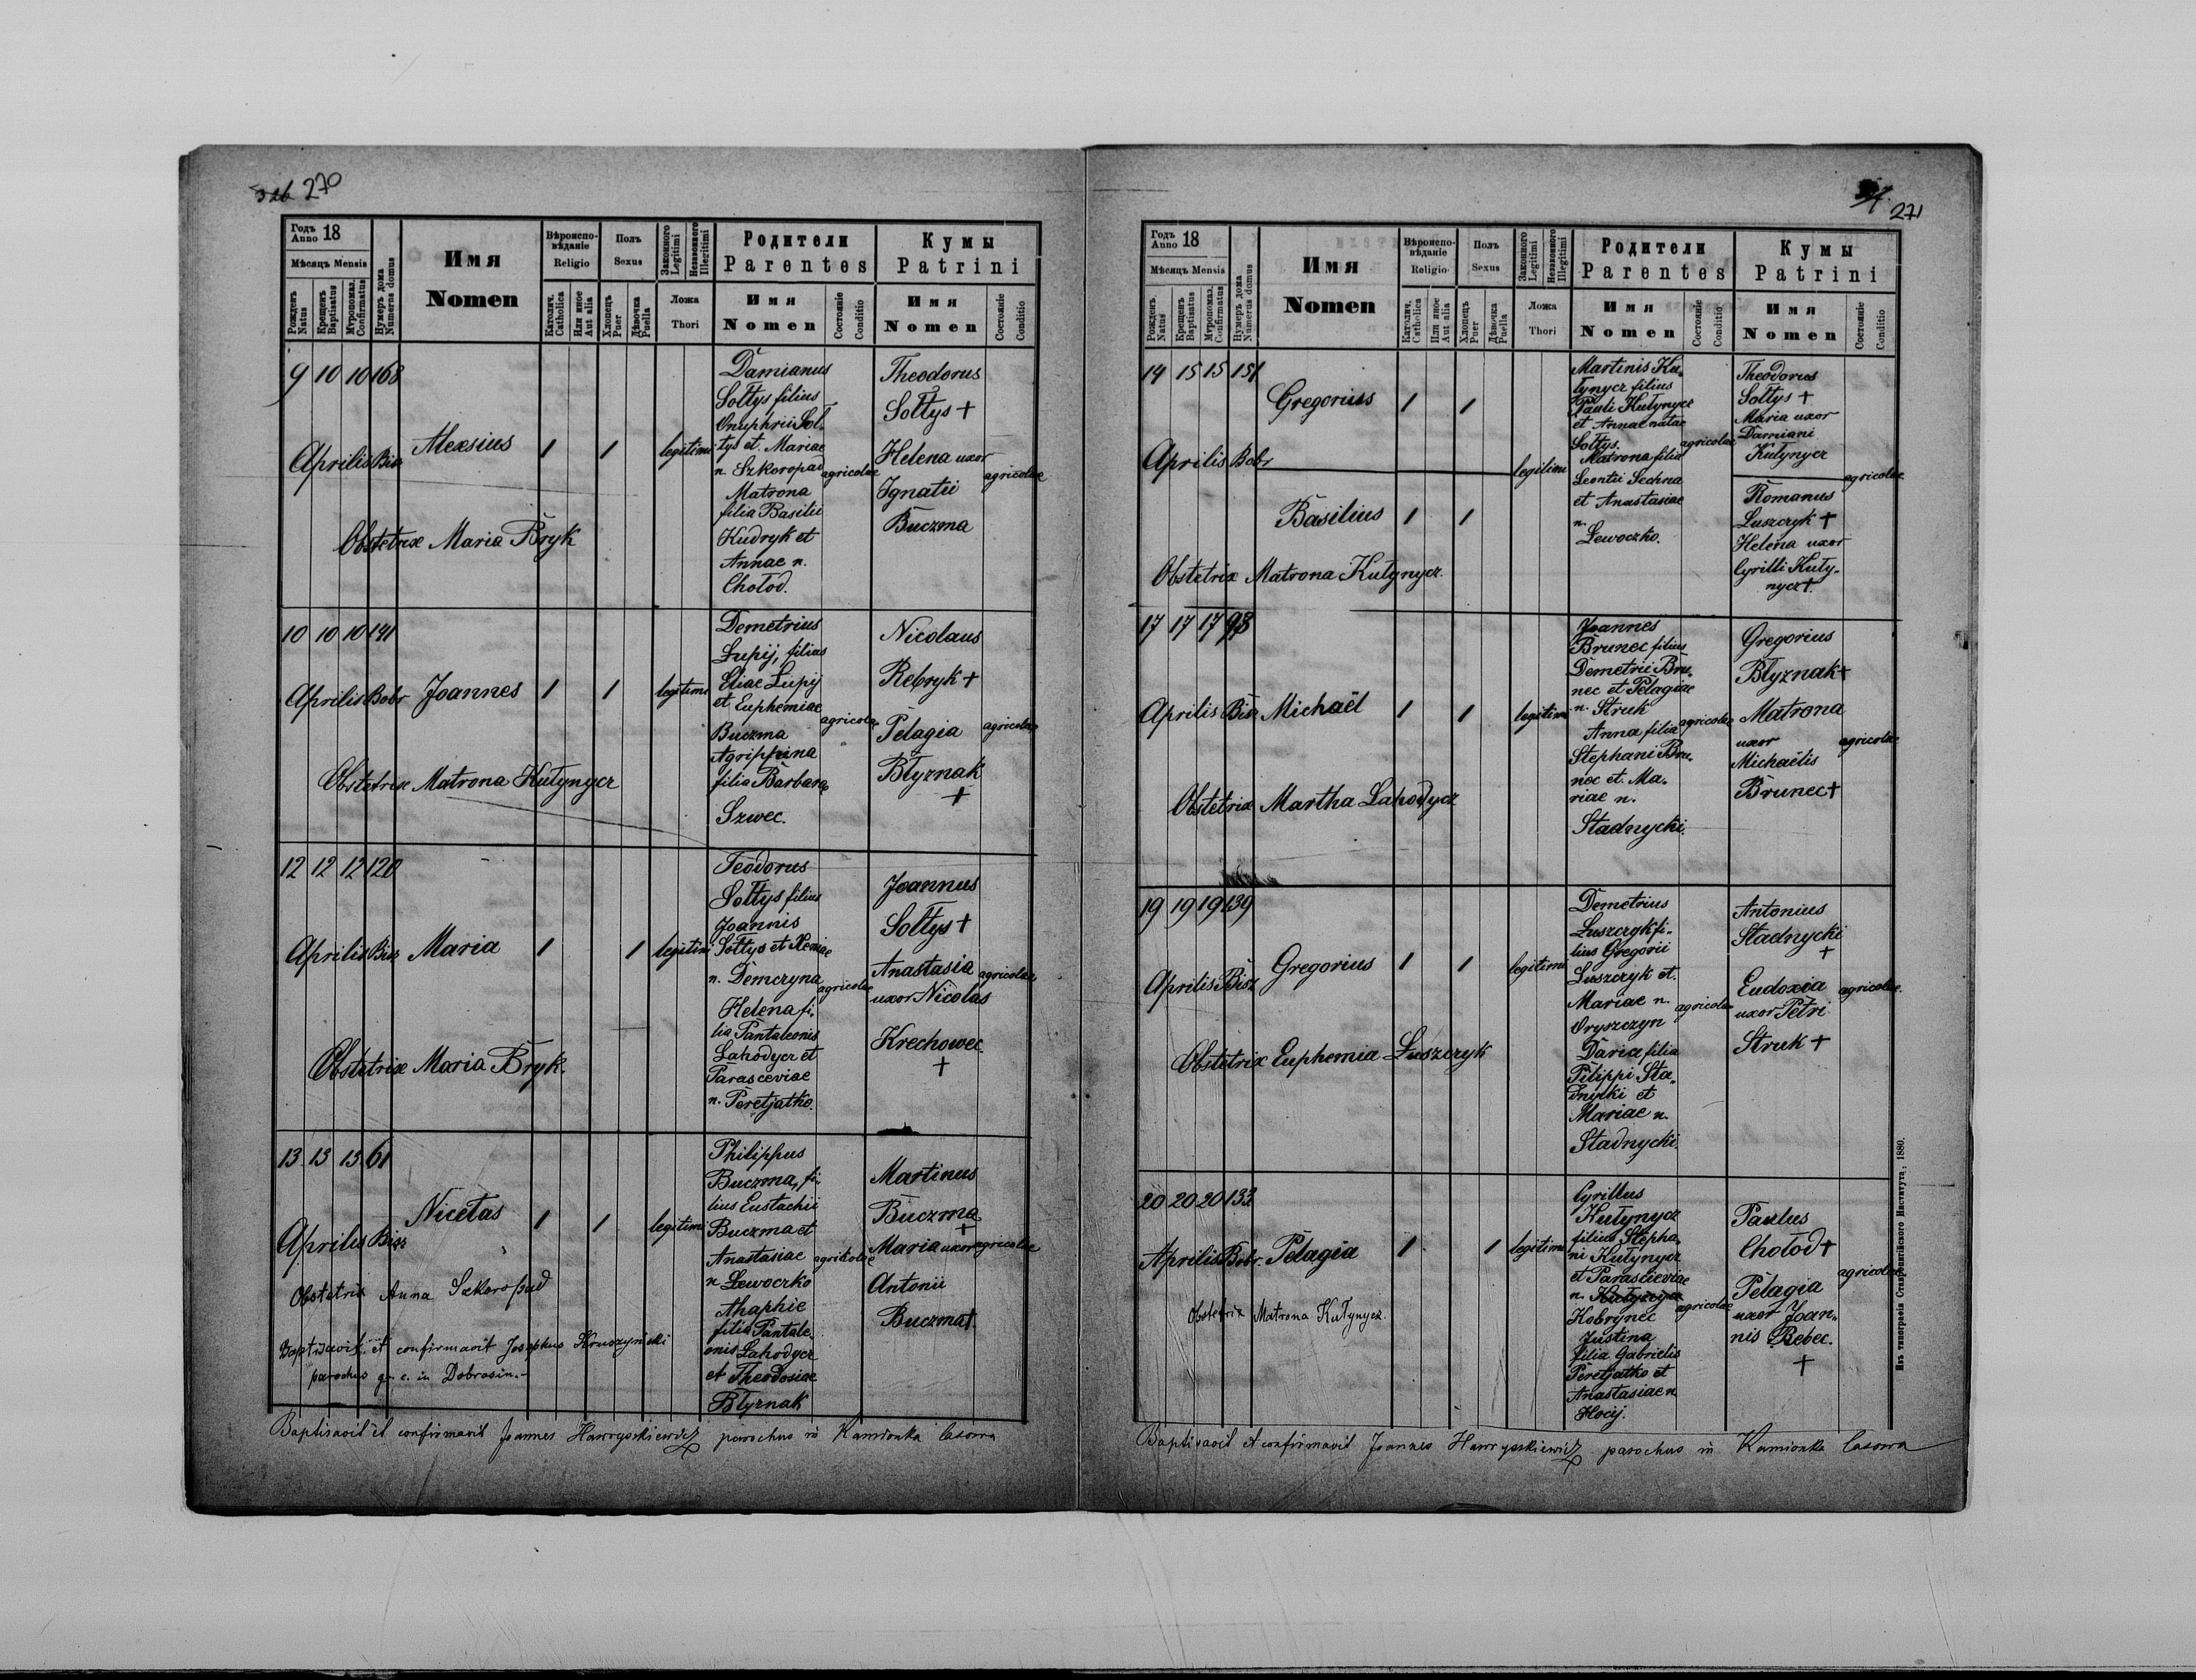 326 270
Годъ Anno 18
Мѣсяцъ Mensis
Рожденъ Natus
Крещенъ Baptisatus
Мѵропомаз. Confirmatus
Нумеръ дома Numerus domus
Имя
Nomen
Вѣроиспо-
вѣданіе
Religio
Католич. Catholica
Или иное Aut alia
Полъ
Sexus
Хлопецъ Puer
Дѣвочка Puella
Законного Legitimi
Незаконного Illegitimi
Ложа
Thori
Родители
Parentes
Имя
Nomen
Состояніе Conditio
Кумы
Patrini
Имя
Nomen
Состояніе Conditio
9 10 10 168
Aprilis Bisz
Alexius
1 1 legitimi
Damianus
Sołtys filius
Onuphrii Soł-
tys et Mariae
n. Szkoropad
Matrona
filia Basilii
Kudryk et
Annae n.
Chołod.
agricolae
Theodorus
Sołtys +
Helena uxor
Ignatii
Buczma
agricolae
Obstetrix Maria Bryk
10 10 10 141
Aprilis Bobr
Joannes
1 1 legitimi
Demetrius
Łupij, filius
Eliae Łupij
et Euphemiae
Buczma
Agrippina
filia Barbarae
Szwec.
agricolae
Nicolaus
Rebryk +
Pelagia
Błyznak
+
agricolae
Obstetrix Matrona Kułynycz
12 12 12 120
Aprilis Bisz
Maria
1 1 legitimi
Teodorus
Sołtys filius
Joannis
Sołtys et Xeniae
n. Demczyna
Helena fi-
lia Pantaleonis
Lahodycz et
Parasceviae
n. Peretjatko.
agricolae
Joannus
Sołtys +
Anastasia
uxor Nicolas
Krechowec.
+
agricolae
Obstetrix Maria Bryk.
13 13 13 61
Aprilis Bisz
Nicetas
1 1 legitimi
Philippus
Buczma, fi-
lius Eustachii
Buczma et
Anastasiae
n Lewoczko
Ahaphie
filia Pantale-
onis Lahodycz
et Theodosiae
Błyznak
agricolae
Martinus
Buczma
+
Maria uxor
Antonii
Buczma +.
agricolae
Obstetrix Anna Szkoropad
Baptisavit et confirmavit Josephus Kruszyński
parochus gr. c. in Dobrosin.-
Baptisavit et confirmavit Joannes Hawryszkiewicz parochus in Kamionka lasowa
271
Годъ Anno 18
Мѣсяцъ Mensis
Рожденъ. Natus
Крещенъ Baptisatus
Мѵропомаз. Confirmatus
Нумеръ дома Numerus domus
Имя
Nomen
Вѣроиспо-
вѣданіе
Religio
Католич. Catholica
Или иное Aut alia
Полъ
Sexus
Хлопецъ Puer
Дѣвочка Puella
Законного Legitimi
Незаконного Illegitimi
Ложа
Thori
Родители
Parentes
Имя
Nomen
Состояніе Conditio
Кумы
Patrini
Имя
Nomen
Состояніе Conditio
14 15 15 151
Aprilis Bobr
Gregorius
1 1
Basilius
1 1
legitimi
Martinis Ku-
łynycz filius
Pauli Kułynycz
et Annae natae
Sołtys.
Matrona filia
Leontii Sechna
et Anastasiae
n.
Lewoczko.
agricolae
Theodorus
Sołtys +
Maria uxor
Damiani
Kułynycz
Romanus
Łuszczyk +
Helena uxor
Cyrilli Kuły-
nycz +.
agricolae
Obstetrix Matrona Kułynycz.
17 17 17 93
Aprilis Bisz
Michaël
1 1 legitimi
Joannes
Brunec filius
Demetrii Bru-
nec et Pelagiae
n. Struk
Anna filia
Stephani Bru-
nec et Ma-
riae n.
Stadnycki.
agricolae
Gregorius
Błyznak +
Matrona
uxor
Michaëlis
Brunec +
agricolae
Obstetrix Martha Lahodycz
19 19 19 139
Aprilis Bisz
Gregorius
1 1 legitimi
Demetrius
Łuszczyk fi-
lius Gregorii
Łuszczyk et
Mariae n.
Oryszczyn
Daria filia
Pilippi Sta-
dnycki et
Mariae n.
Stadnycki.
agricolae
Antonius
Stadnycki
+
Eudoxia
uxor Petri
Struk +
agricolae.
Obstetrix Euphemia Łuszczyk
20 20 20 133
Aprilis Bobr.
Pelagia
1 1 legitimi
Cyrillus
Kułynycz
filius Stepha-
ni Kułynycz
et Parasceviae
n. Kułynycz
Kobrynec
Justina
filia Gabrielis
Peretjatko et
Anastasiae n
Hocij.
agricolae
Paulus
Chołod +
Pelagia
uxor Joan-
nis Rebec.
+
agricolae
Obstetrix Matrona Kułynycz.
Baptisavit et confirmavit Joannes Hawryszkiewicz parochus in Kamionka lasowa
Изъ типографіи Ставропигійского Института, 1880.